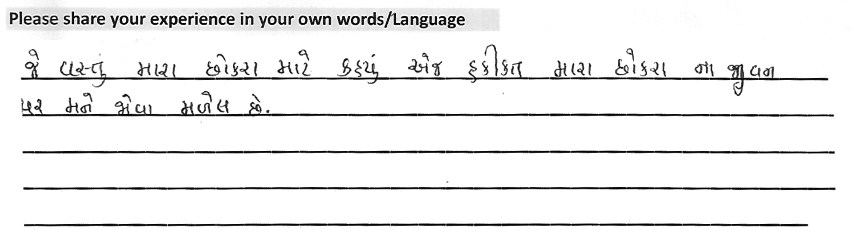 Please share your experience in your own words/Language
જે વસ્તું મારા છોકરા માટે કહયું એજ હકીકત મારા છોકરા ના જીવન
પર મને જોવા મળેલ છે.